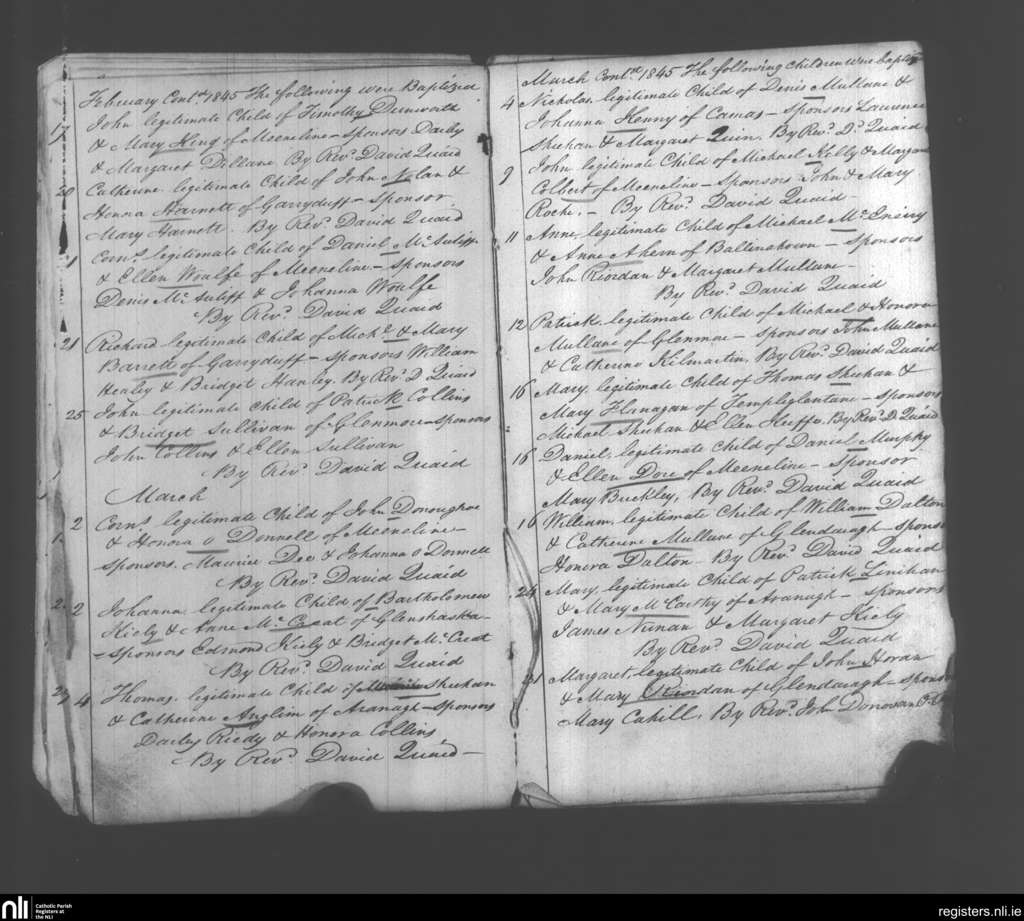 February Contd. 1845 The following were Baptized
17 John legitimate Child of Timothy Dunworth
& Mary King of Meeneline – sponsors Darby
& Margaret Dillane By Revd. David Quaid
20 Catherine legitimate Child of John Nolan &
Honora Harnett of Garryduff – Sponsor
Mary Harnett. By Revd. David Quaid
Corns. legitimate Child of Daniel McAuliff
& Ellen Woulfe of Meeneline – Sponsors
Denis McAuliff & Johanna Woulfe
By Revd. David Quaid
21 Richard legitimate Child of Michl. & Mary
Barrett of Garryduff – sponsors William
Healy & Bridget Hanley. By Revd. D Quaid
25 John legitimate Child of Patrick Collins
& Bridget Sullivan of Glenmore – sponsors
John Collins & Ellen Sullivan
By Revd. David Quaid
March
2 Corns. legitimate Child of John Donoughoe
& Honora O Donnell of Meeneline –
sponsors. Maurice Dee & Johanna O Donnell
By Revd. David Quaid
2 Johanna legitimate Child of Bartholomew
Kiely & Anne McCreat of Glenshaska –
– Sponsors Edmond Kiely & Bridget McCreat
By Revd. David Quaid
4 Thomas, legitimate Child of Sheehan
& Catherine Anglim of Aranagh – sponsors
Darby Riedy & Honora Collins
By Revd. David Quaid –
March Contd. 1845 The following Children were baptiz
4 Nicholas legitimate Child of Denis Mullane &
Johanna Kenny of Camas – sponsors Laurence
Sheehan & Margaret Quin. By Revd. D. Quaid
9 John legitimate Child of Michael Kelly & Margar
Colbert of Meeneline – Sponsors John & Mary
Roche. – By Revd. David Quaid
11 Anne, legitimate Child of Michael McEniry
& Anne Ahern of Ballinahown – Sponsors
John Riordan & Margaret Mullane –
By Revd. David Quaid
12 Patrick legitimate Child of Michael & Honora
Mullane of Glenmore – sponsors John Mullane
& Catherine Kilmartin. By Revd. David Quaid
16 Mary, legitimate Child of Thomas Sheehan &
Mary Flanagan of Templeglantane – sponsors
Michael Sheehan & Ellen Keiffe. By Revd. D. Quaid
16 Daniel, legitimate Child of Daniel Murphy
& Ellen Dore of Meeneline – Sponsor
Mary Buckley, By Revd. David Quaid
16 William, legitimate Child of William Dalton
& Catherine Mullane of Glendaragh – spons
Honora Dalton – By Revd. David Quaid
24 Mary, legitimate Child of Patrick Linihan
& Mary McCarthy of Aranagh – sponsors
James Nunan & Margaret Kiely
By Revd. David Quaid
Margaret, legitimate Child of John Horan
& Mary Riordan of Glendaragh – sponsor
Mary Cahill, By Revd. Joh Donovan
nli
Catholic Parish
Registers at
the NLI
registers.nli.ie